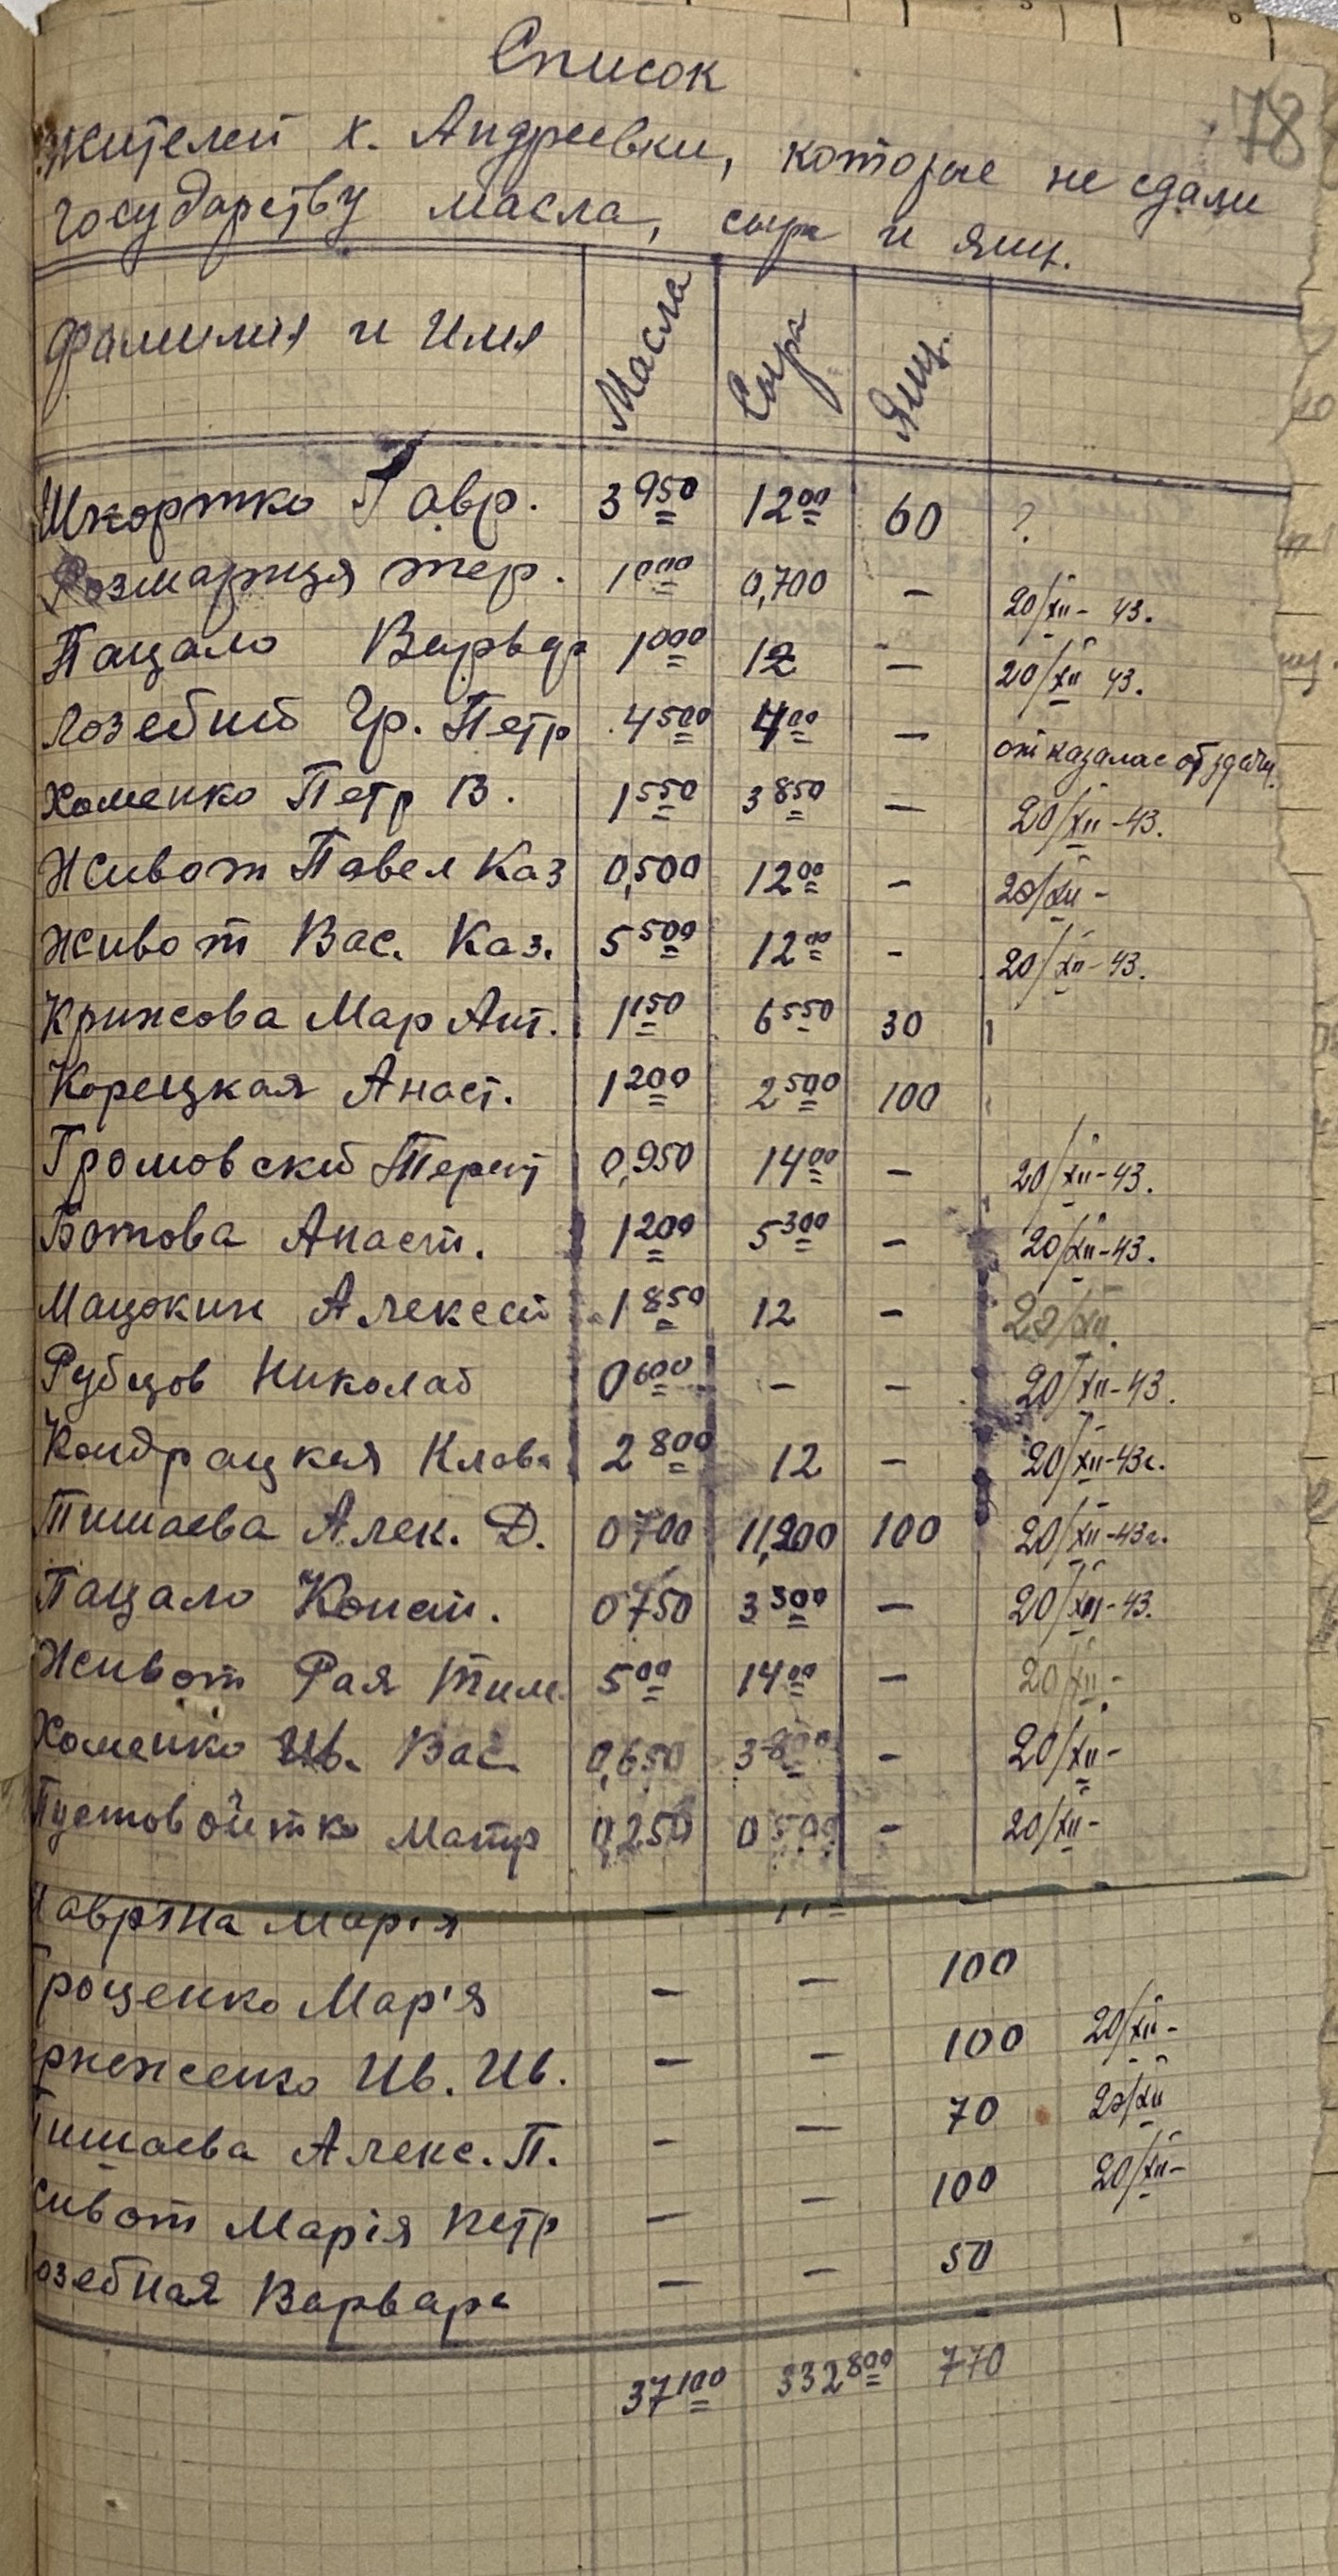 78
Список
жителей х. Андреевки, которые не сдали
государству масла, сыра и яиц.
Фамилия и Имя Масла Сыра Яиц.
Шкортко Гавр. 3950 1200 60 ?
Розмарица тер. 1000 0,700 – 20/XII – 43.
Пацало Варвар 1000 12 – 20/XII 43.
Лозебний Гр. Петр 4500 400 – отказалас от здачи.
Хоменко Петр В. 1550 3850 – 20/XII-43.
Живот Павел Каз 0,500 1200 – 20/XII –
Живот Вас. Каз. 5500 1200 – 20/XII-43.
Крижова Мар Ант. 1150 6550 30
Корецкая Анаст. 1200 2500 100
Громовский Терент 0,950 1400 – 20/XII-43.
Ботова Анаст. 1200 5300 – 20/XII-43.
Мацокин Алексей 1850 12 – 20/XII.
Рубцов Николай 0600 – – 20/XII-43.
Кондрацкая Клава 2800 12 – 20/XII-43г.
Тишаева Алек. Д. 0700 11,200 100 20/XII-43г.
Пацало Конст. 0750 3500 – 20/XII-43.
Живот Рая Тим. 500 1400 – 20/XII –
Хоменко Ив. Вас. 0,650 3800 – 20/XII –
Пустовойтко Матр 0,250 0500 – 20/XII –
Марія – –
роценко Мар'я – – 100
Ив. Ив. – – 100 20/XII –
ишаева Алекс. П. – – 70 20/XII
ивот Марія Петр – – 100 20/XII –
озебная Варвара – – 50
37100 332800 770